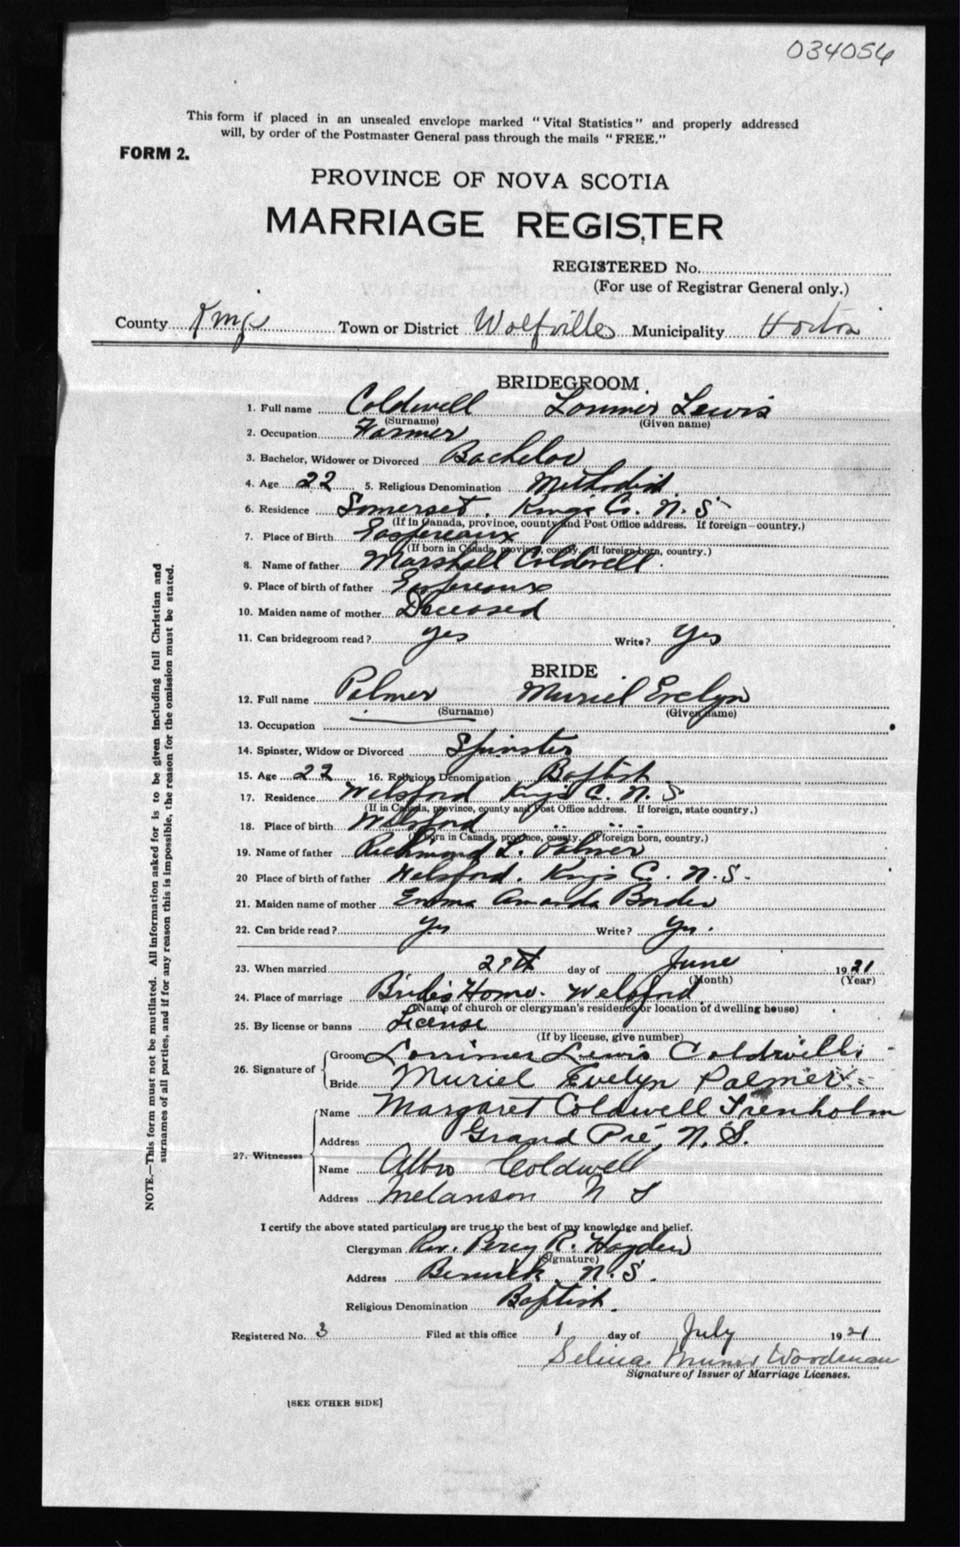 034054
This form if placed in an unsealed envelope marked "Vital Statistics" and properly addressed
will, by order of the Postmaster General pass through the mails "FREE."
FORM 2.
PROVINCE OF NOVA SCOTIA
MARRIAGE REGISTER
REGISTERED No.
(For use of Registrar General only.)
County Kings Town or District Wolfville Municipality Horton
BRIDEGROOM
1. Full name Coldwell Lorimer Lewis
(Surname) (Given name)
2. Occupation Farmer
3. Bachelor, Widower or Divorced Bachelor
4. Age 22 5. Religious Denomination Methodist
6. Residence Somerset, Kings Co. N. S
(If in Canada, province, county and Post Office address. If foreign—country.)
7. Place of Birth Gaspereaux
(If born in Canada, province, county. If foreign born, country.)
8. Name of father Marshall Coldwell.
9. Place of birth of father Gaspereaux
10. Maiden name of mother Deceased
11. Can bridegroom read? yes Write? yes
BRIDE
12. Full name Palmer Muriel Evelyn
(Surname) (Given name)
13. Occupation
14. Spinster, Widow or Divorced Spinster
15. Age 22 16. Religious Denomination Baptist
17. Residence Welsford Kings C. N. S
(If in Canada, province, county and Post Office address. If foreign, state country.)
18. Place of birth Welsford
(If born in Canada, province, county. If foreign born, country.)
19. Name of father Richmond L. Palmer
20 Place of birth of father Welsford. Kings C. N. S.
21. Maiden name of mother Emma Amanda Borden
22. Can bride read? Yes Write? Yes.
23. When married 29th day of June 1921
(Month) (Year)
24. Place of marriage Bride's Home. Welsford.
(Name of church or clergyman's residence or location of dwelling house)
25. By license or banns License
(If by license, give number)
26. Signature of Groom Lorrimer Lewis Coldwell
Bride Muriel Evelyn Palmer
27. Witnesses Name Margaret Coldwell Trenholm
Address Grand Pré, N. S.
Name Albro Coldwell
Address Melanson N S
I certify the above stated particulars are true to the best of my knowledge and belief.
Clergyman Rev. Percy R. Hayden
(Signature)
Address Berwick N. S.
Religious Denomination Baptist.
Registered No. 3 Filed at this office 1 day of July 1921
Selina Woodman
Signature of Issuer of Marriage Licenses.
[SEE OTHER SIDE]
NOTE.—This form must not be mutilated. All information asked for is to be given including full Christian and
surnames of all parties, and if for any reason this is impossible, the reason for the omission must be stated.